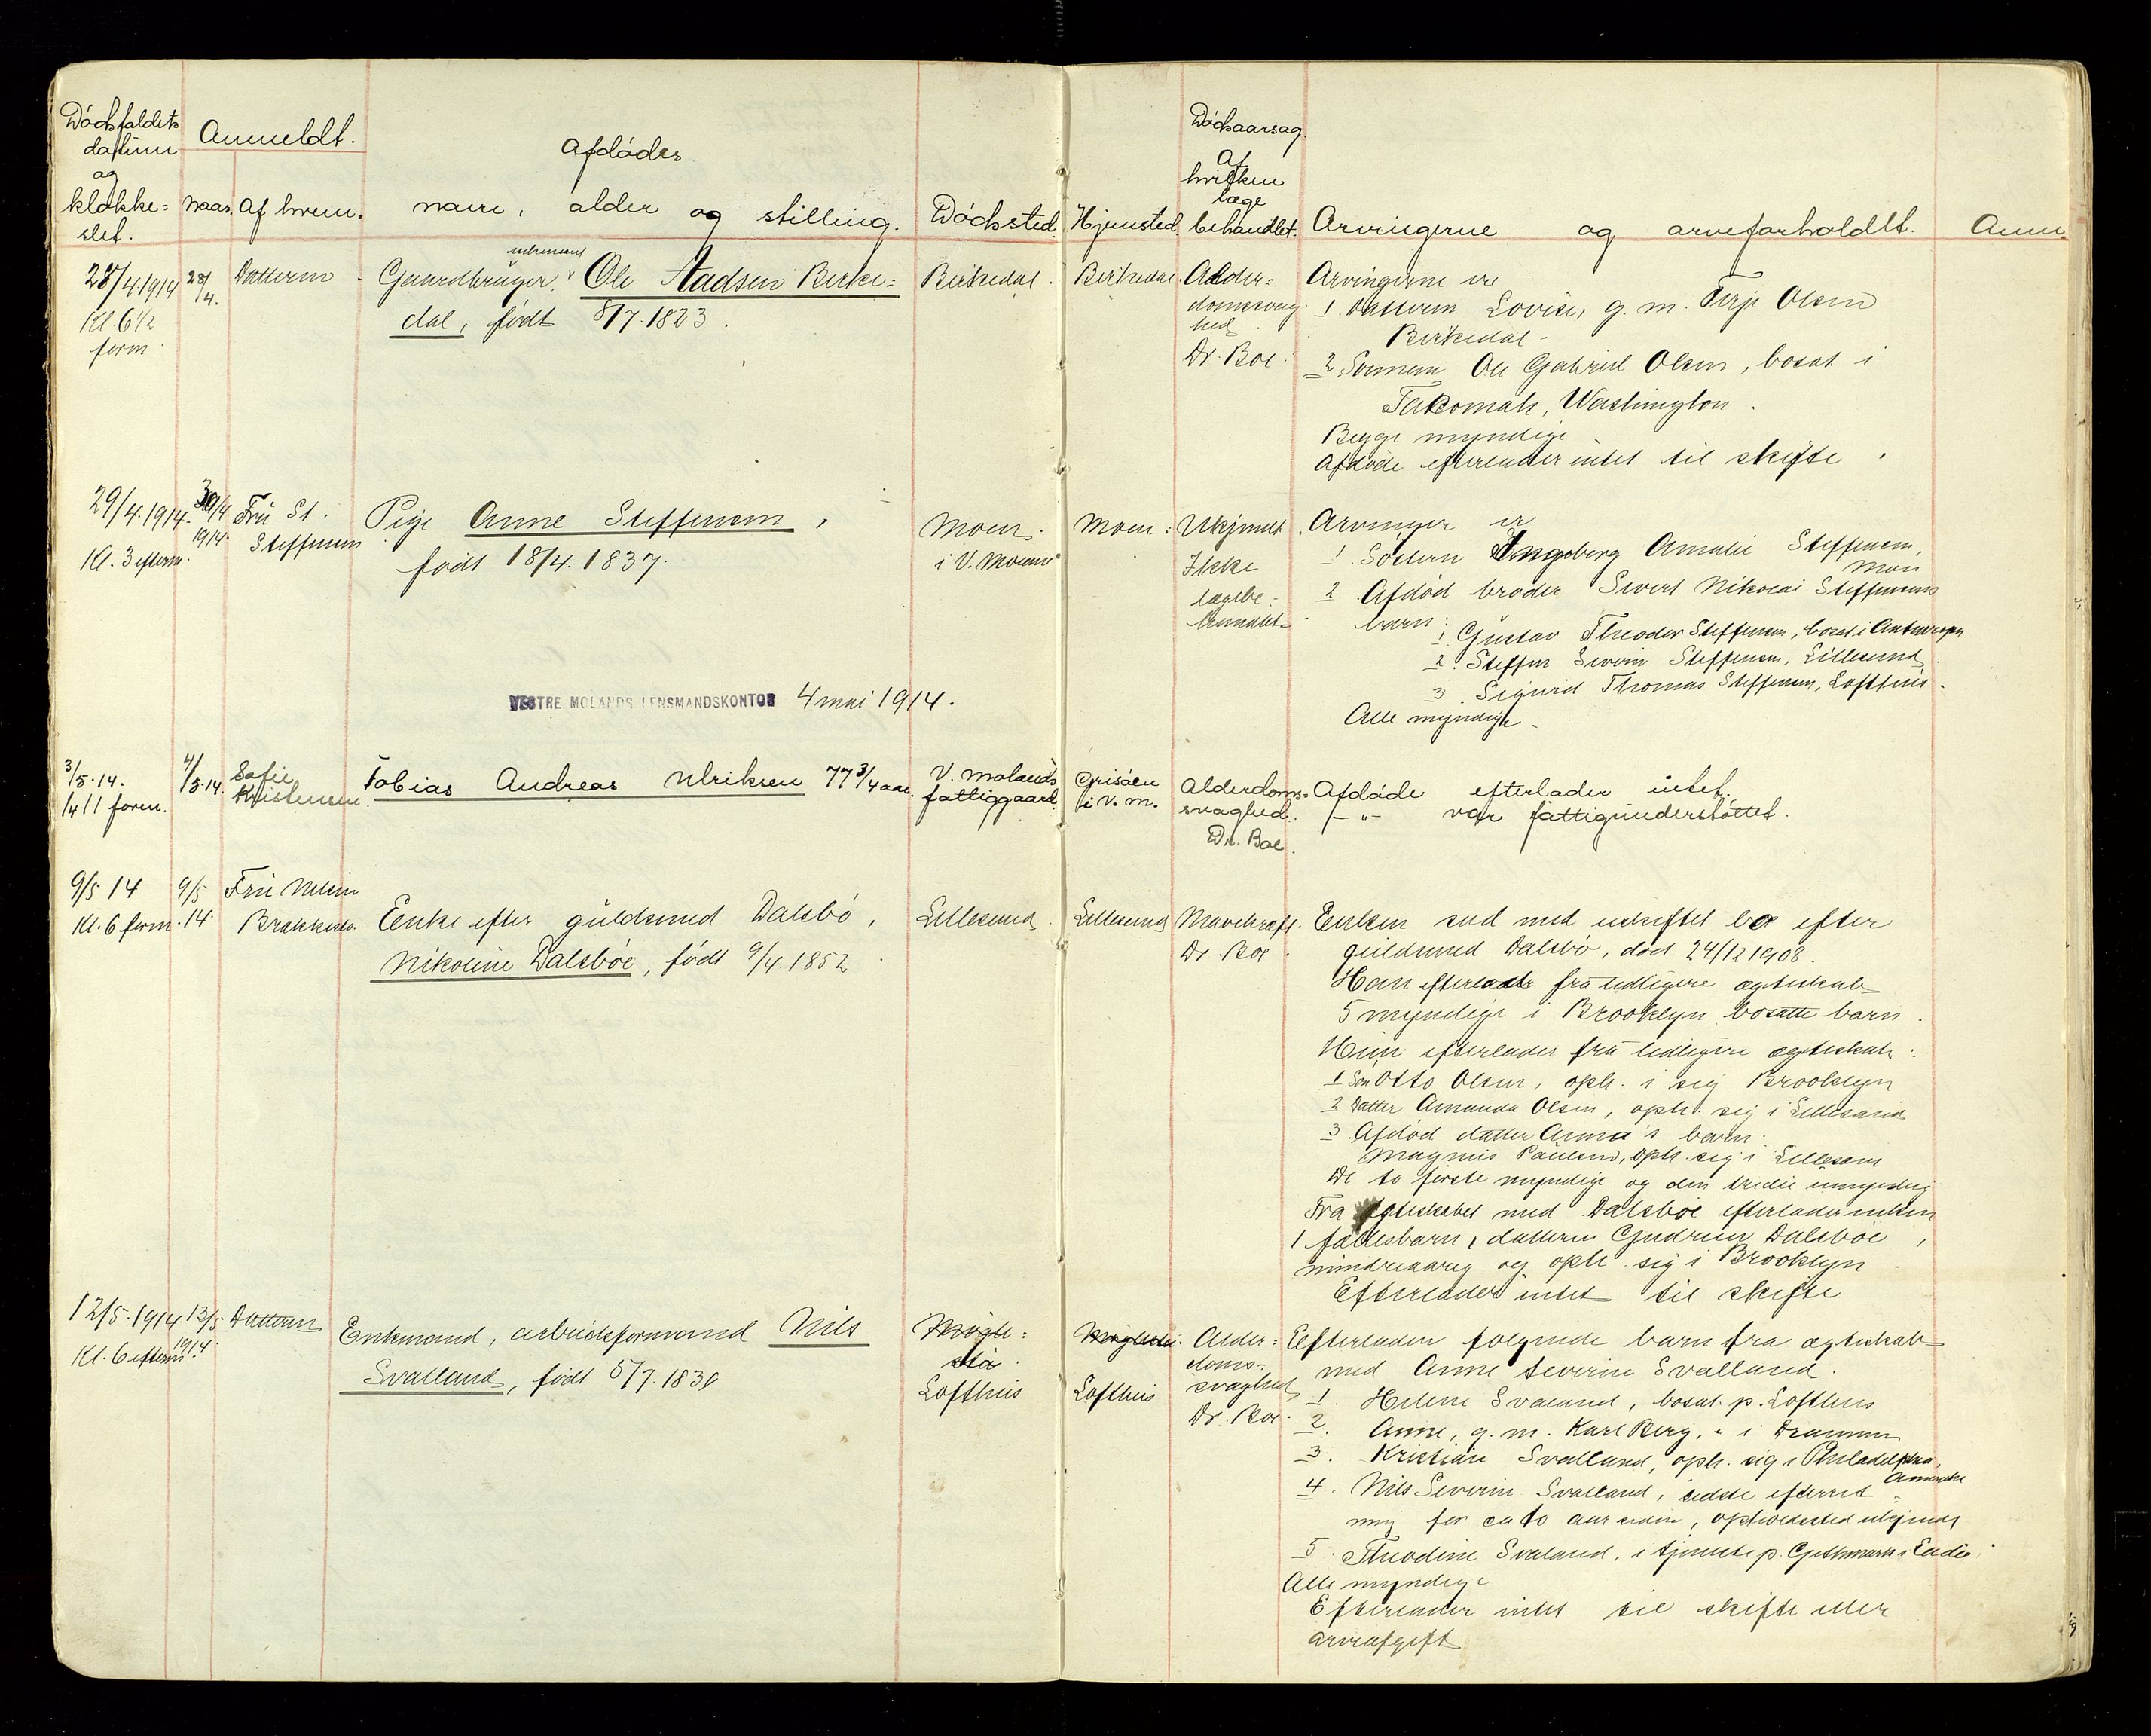 Dödsfaldets datum og klokke= slet.
Anmeldt.
Naar. Af hvem.
Afdödes
navn, alder og stilling.
Dödssted.
Hjemsted.
Dödsaarsag.
Af hvilken læge behandlet.
Arvingerne og arveforholdet.
Anm.
28/4 1914
Kl. 6½
form
28/4.
Datteren
enkemand
Gaardbruger Ole Aadsen Birke=
dal, födt 8/7.1823.
Birkedal.
Birkedal
Alder=
domssvag
hed
Dr. Boe.
Arvingerne er
1. Datteren Lovise, g. m. Terje Olsen
Birkedal.
2. Sönnen Ole Gabriel Olsen, bosat i
Takomah, Washington.
Begge myndige
Afdöde efterlader intet til skifte.
29/4.1914.
Kl. 3 efterm.
30/4
1914.
Frü St.
Steffensen
Pige Anne Steffensen,
födt 18/4.1837.
Moen
i V. Moland
Moen.
Ukjendt
Ikke
lægebe=
handlet
Arvinger er
1. Söstern Ingeborg Amalie Steffensen,
Moen
2. Afdöd broder Sivert Nikolai Steffensens
barn:
1. Güstav Theodor Steffensen, bosat i Antwerpen
2. Steffen Severin Steffensen, Lillesand
3. Sigurd Thomas Steffensen, Lofthüs.
Alle myndige.
VESTRE MOLANDS LENSMANDSKONTOR 4 mai 1914.
3/5.14.
¼11 form.
4/5.14.
Sofie
Kristensen.
Tobias Andreas Ulriksen 77 3/4 aar.
V. Molands
fattiggaard.
i V. M.
Alderdoms=
svaghed.
Dr. Boe.
Afdöde efterlader intet.
—"— var fattigünderstöttet.
9/5 14
Kl. 6 form.
9/5
14.
Frü
Enke efter güldsmed Dalsbö,
Nikoline Dalsböe, födt 9/4.1852
Lillesand.
Lillesand
Mavekræft.
Dr. Boe.
Enken sad med uskiftet bo efter
güldsmed Dalsbö, död 24/12 1908.
Han efterlader fra tidligere ægteskab
5 myndige i Brooklyn bosatte barn.
Hün efterlader fra tidligere ægteskab:
1 Sön Otto Olsen, oph. i sig Brooklyn
2 Datter Amanda Olsen, oph. sig i Lillesand
3. Afdöd datter Anna's barn:
Magnus Paülsen, oph. sig i Lillesand
De to förste myndige og den tredie ümyndig
Fra ægteskabet med Dalsböe efterlader enken
1 fællesbarn, datteren Gudrün Dalsböe,
mindreaarig og oph. sig i Brooklyn.
Efterlader intet til skifte
12/5.1914
Kl. 6 efterm
13/5
1914.
Datteren
Enkemand, arbeidsformand Nils
Svalland, födt 5/7.1830
Lofthüs
Lofthüs
Alder=
doms=
svaghed
Dr. Boe.
Efterlader fölgende barn fra ægteskab
med Anne Severine Svalland.
1. Helene Svaland, bosat. p. Lofthus
2. Anne, g. m. Karl Berg, " i Drammen
3. Kristian Svalland, oph. sig i Philadelphia,
Amerika
4. Nils Severin Svalland, sidste efterret=
ning for ca 10 aar siden, opholdssted ukjendt
5. Theodine Svaland, i tjeneste p.
Alle myndige
Efterlader intet til skifte eller
arveafgift